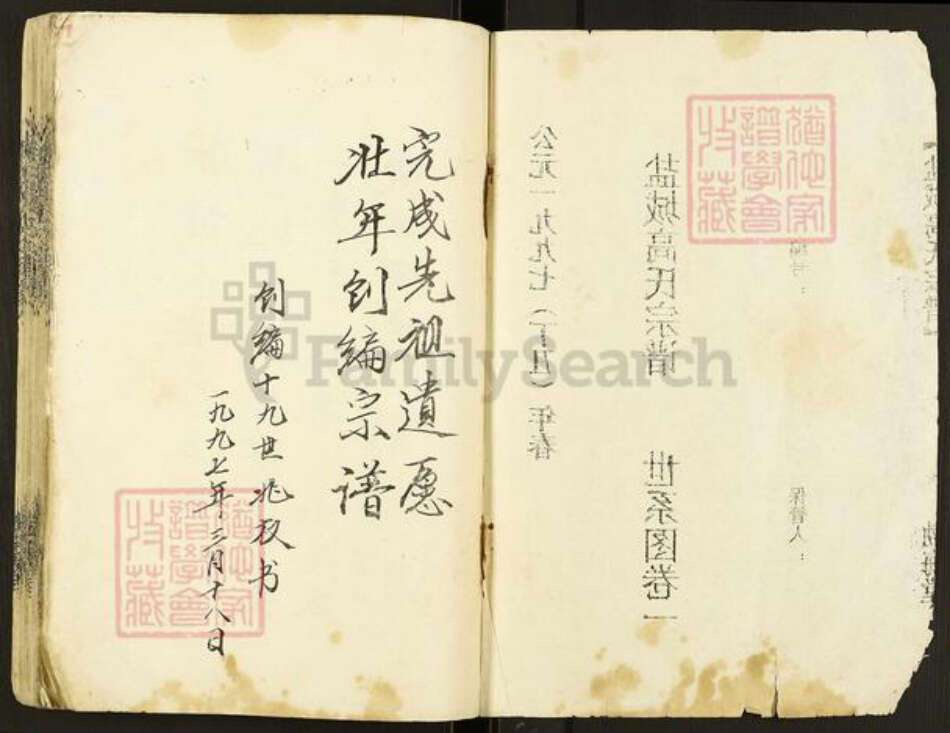 完成先祖遺愿
壮年创编宗谱
创编十九世兆权书
一九九七年三月十八日
猶他家
譜學會
收藏
FamilySearch
猶他家
譜學會
收藏
编号：
保管人：
盐城高氏宗谱 世系图卷一
公元一九九七（丁丑）年春